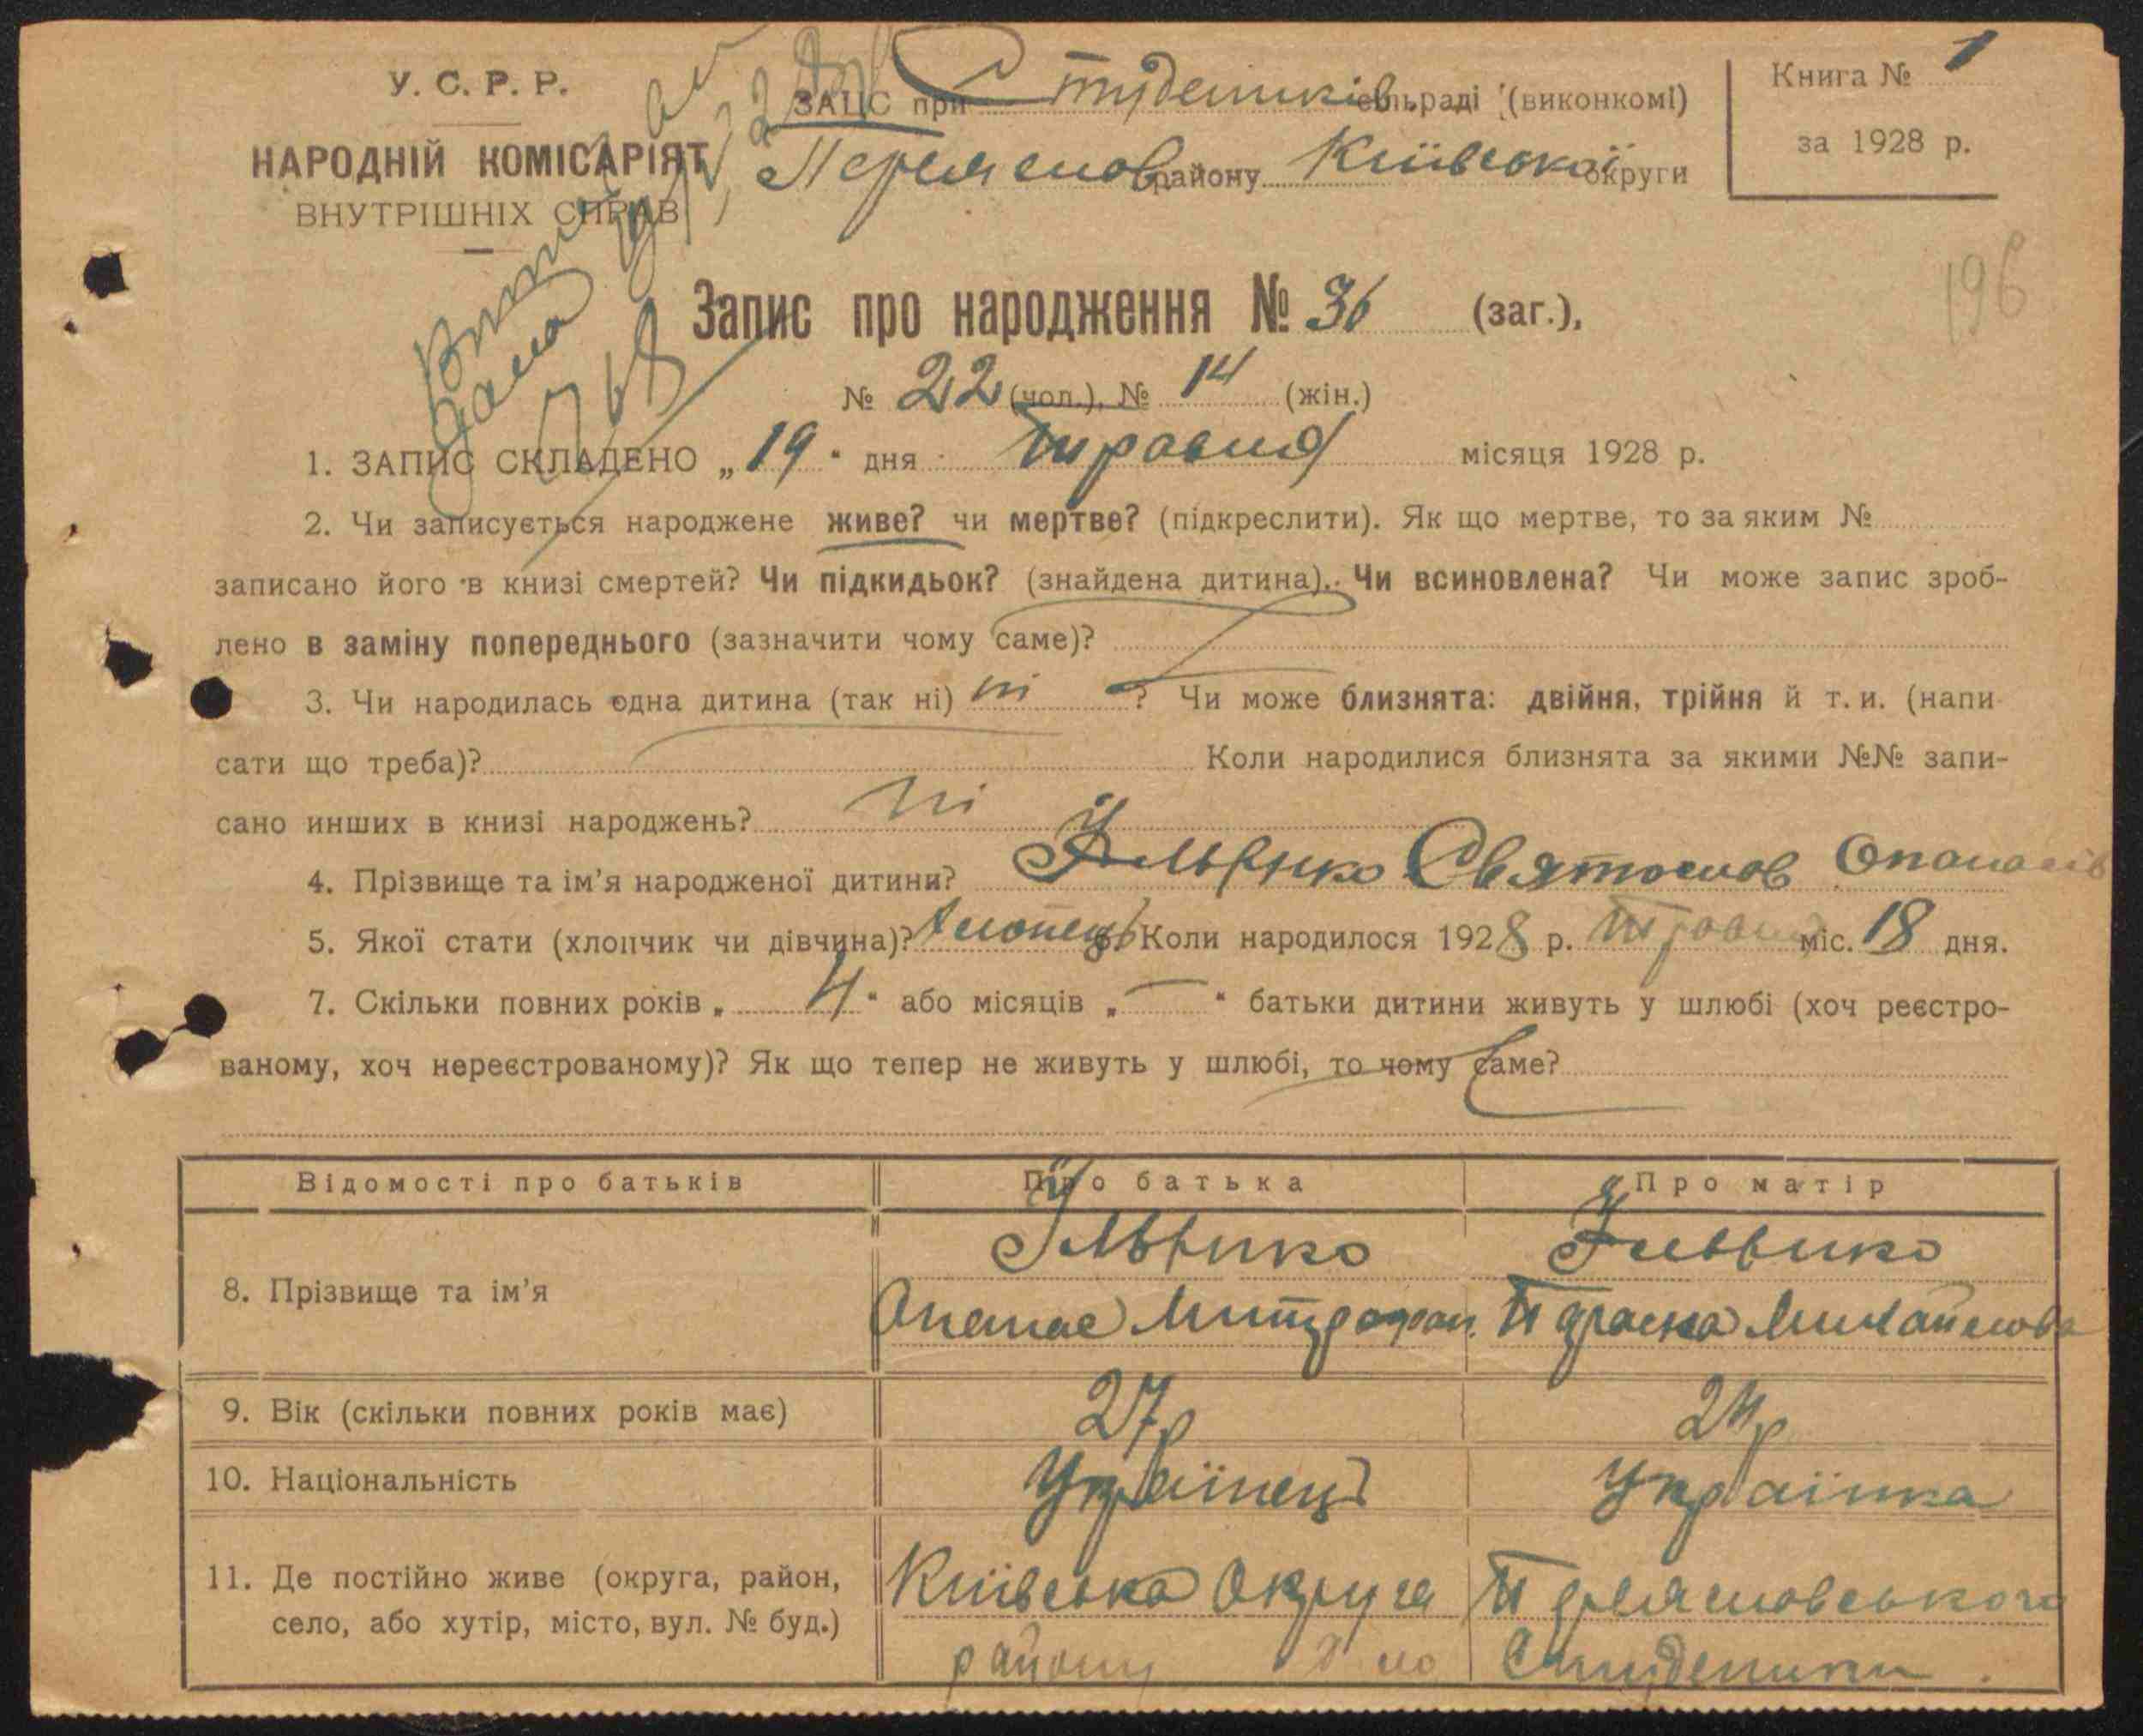 У. С. Р. Р.
НАРОДНІЙ КОМІСАРІЯТ
ВНУТРІШНІХ СПРАВ
ЗАЦС при Студеників сільраді (виконкомі)
Переяслов району Київської округи
Книга № 1
за 1928 р.
196
Запис про народження № 36 (заг.),
№ 22 (чол.), № 14 (жін.)
1. ЗАПИС СКЛАДЕНО „19“ дня травня місяця 1928 р.
2. Чи записується народжене живе? чи мертве? (підкреслити). Як що мертве, то за яким №
записано його в книзі смертей? Чи підкидьок? (знайдена дитина). Чи всиновлена? Чи може запис зроб-
лено в заміну попереднього (зазначити чому саме)?
3. Чи народилась одна дитина (так ні) ні ? Чи може близнята: двійня, трійня й т. и. (напи-
сати що треба)? Коли народилися близнята за якими №№ запи-
сано инших в книзі народжень? ні
4. Прізвище та ім'я народженої дитини? Святослов Опанасів
5. Якої стати (хлопчик чи дівчина)? хлопець Коли народилося 1928 р. травня міс. 18 дня.
7. Скільки повних років „ 4 “ або місяців „ — “ батьки дитини живуть у шлюбі (хоч реєстро-
ваному, хоч нереєстрованому)? Як що тепер не живуть у шлюбі, то чому саме?
Відомості про батьків Про батька Про матір
8. Прізвище та ім'я
Опанас Митрофан. Параска Михайлова
9. Вік (скільки повних років має) 27р 24р
10. Національність Українець Українка
11. Де постійно живе (округа, район,
село, або хутір, місто, вул. № буд.)
Київська округа Переясловського
району село Студеники.